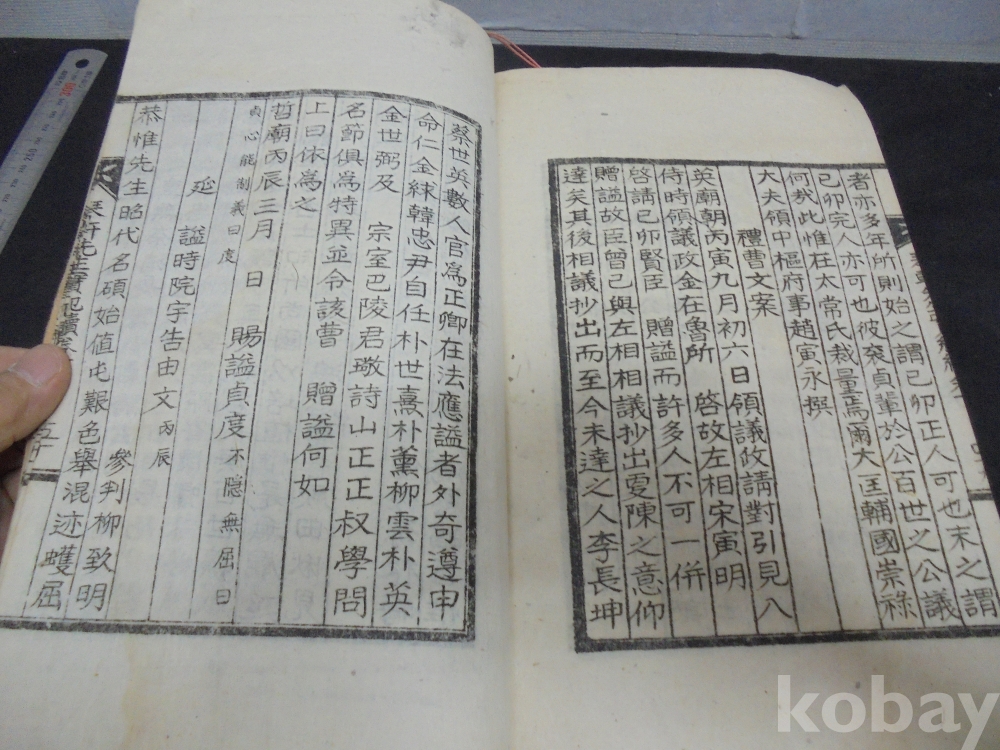 者亦多年所則始之謂己卯正人可也末之謂
己卯完人亦可也彼袞貞輩於公百世之公議
何哉此惟在太常氏裁量焉爾大匡輔國崇祿
大夫領中樞府事趙寅永撰
禮曹文案
英廟朝丙寅九月初六日領議政請對引見入
侍時領議政金在魯所 啓故左相宋寅明
啓請己卯賢臣 贈謚而許多人不可一併
贈謚故臣曾已與左相相議抄出更陳之意仰
達矣其後相議抄出而至今未達之人李長坤
蔡世英數人官爲正卿在法應謚者外奇遵申
命仁金絿韓忠尹自任朴世熹朴薰柳雲朴英
金世弼及 宗室巴陵君璥詩山正正叔學問
名節俱爲特異並令該曹 贈謚何如
上曰依爲之
哲廟丙辰三月 日 賜謚貞度 不隱無屈曰
貞心能制義曰度
延謚時院宇告由文 丙辰
參判柳致明
恭惟先生昭代名碩始值屯艱色舉混迹蠖屈
kobay